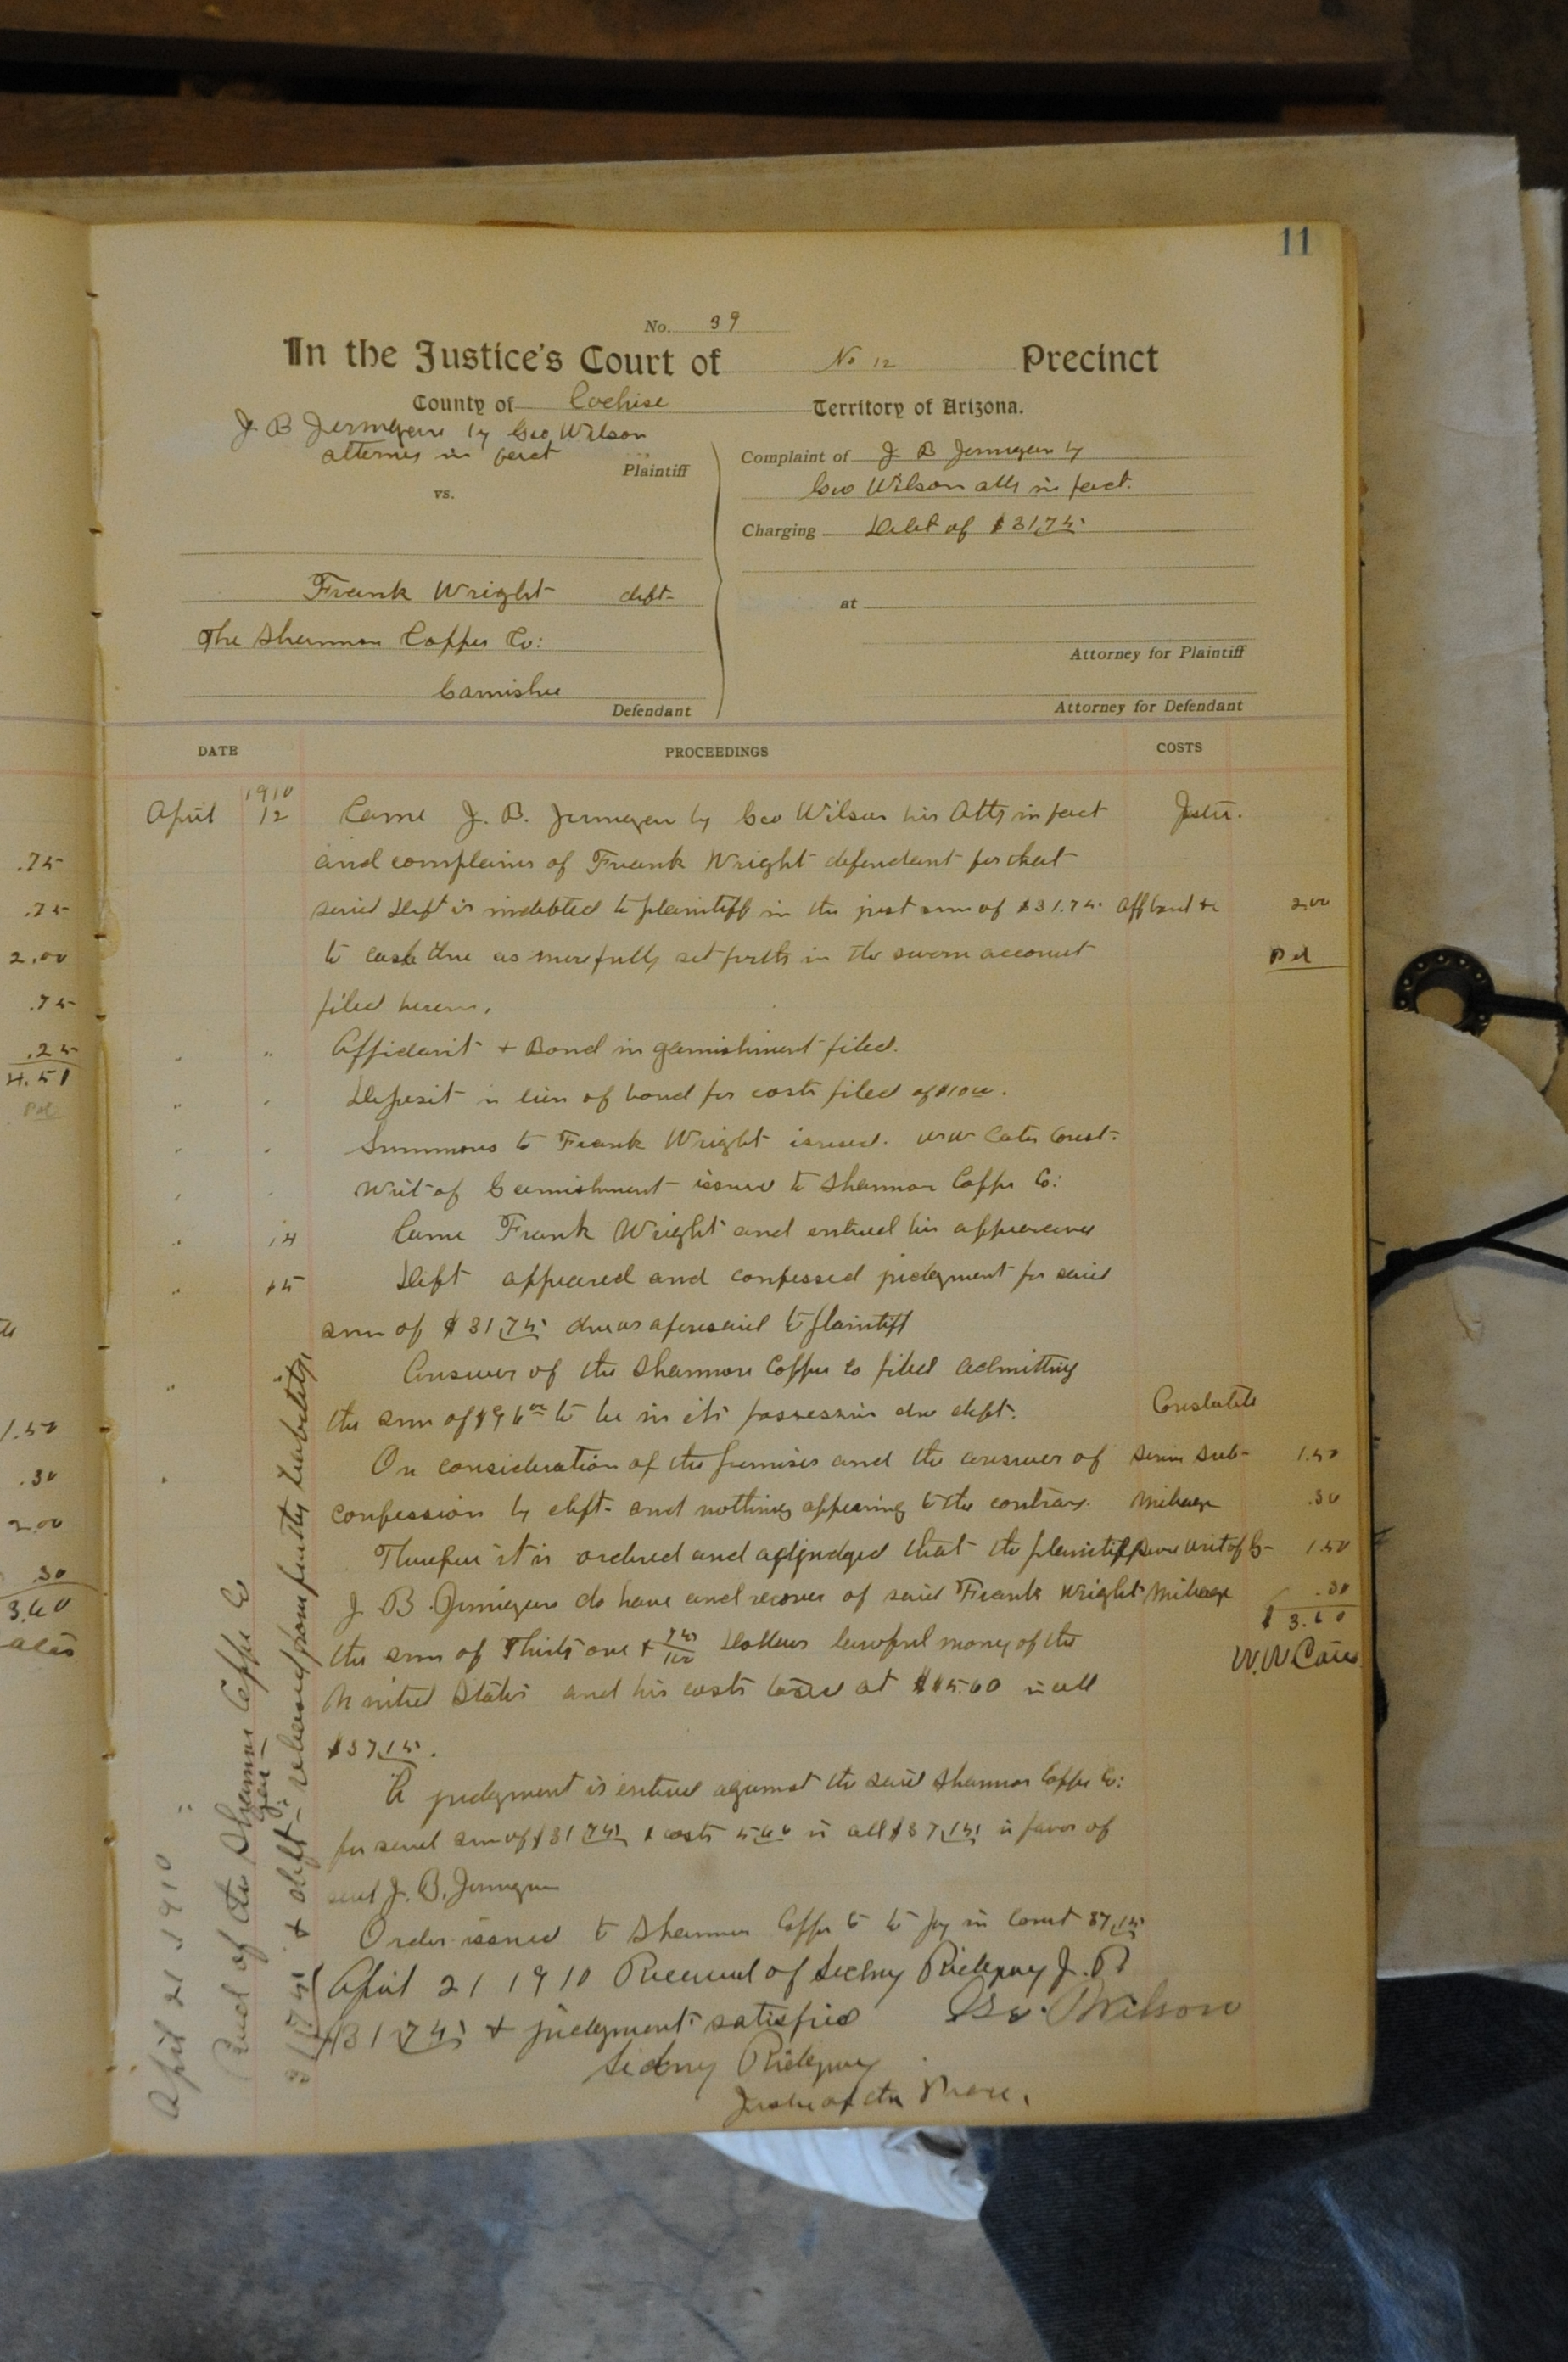 11
No. 39
In the Justice's Court of No 12 Precinct
County of Cochise Territory of Arizona.
J B Jernigan by Geo Wilson
attorney in fact
Plaintiff
vs.
Frank Wright deft-
The Shannon Copper Co:
Garnishee
Defendant
Complaint of J B Jernigan by
Geo Wilson atty in fact.
Charging Debt of $31.75
at
Attorney for Plaintiff
Attorney for Defendant
DATE PROCEEDINGS COSTS
1910
April 12 Came J. B. Jernigan by Geo Wilson his Atty in fact
and complains of Frank Wright defendant for that
said Deft is indebted to plaintiff in the just sum of $31.75 aff bond & 2.00
to cash due as more fully set forth in the sworn account Pd
filed herein.
" " Affidavit + Bond in garnishment filed.
" " Deposit in lieu of bond for costs filed of $10.00.
" " Summons to Frank Wright issued. W W Const.
" " Writ of Garnishment issued to Shannon Copper Co:
" 14 Came Frank Wright and entered his appearance
" 15 Deft appeared and confessed judgment for said
sum of $31.75 due as aforesaid to plaintiff
" Answer of the Shannon Copper Co filed admitting
the sum of $96.00 to be in its possession due deft.
Constable
On consideration of the premises and the answer of 1.50
confession by deft. and nothing appearing to the contrary. Mileage .30
Therefore it is ordered and adjudged that the plaintiff Serve writ of G- 1.50
J B Jernigan do have and recover of said Frank Wright Mileage .30
$ 3.60
the sum of Thirty one + 75/100 Dollars lawful money of the
W.W.
United States and his costs taxed at $5.60 in all
$37.15.
A judgment is entered against the said Shannon Copper Co:
for said sum of $31.75 & costs in all $37.15 in favor of
said J. B. Jernigan
Order issued to Shannon Copper Co to pay in Court 37.15
April 21 1910 Received of Sidney Ridgway J. P.
$31.75 + judgment satisfied Geo. Wilson
Sidney Ridgway
Justice of the Peace.
April 21 1910
Recd of the Shannon Copper Co
31.75 + deft- released from further liability.
.75
.75
2.00
.75
.25
4.51
Pd
1.50
.30
2.00
.30
3.60